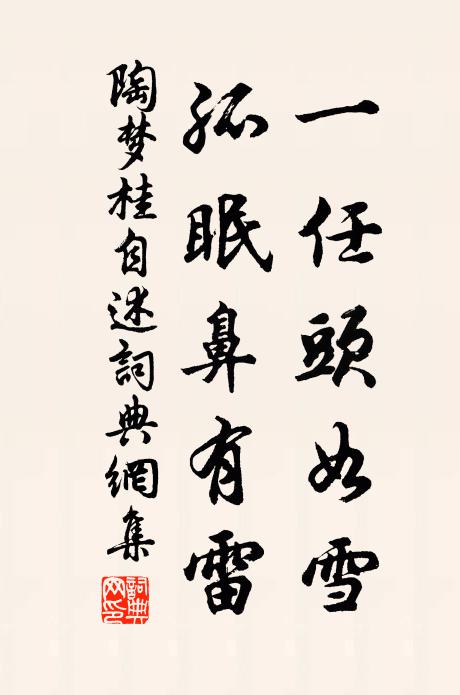 一任頭如雪
孤眠鼻有雷
陶梦桂自述詞典網集
詞典网印